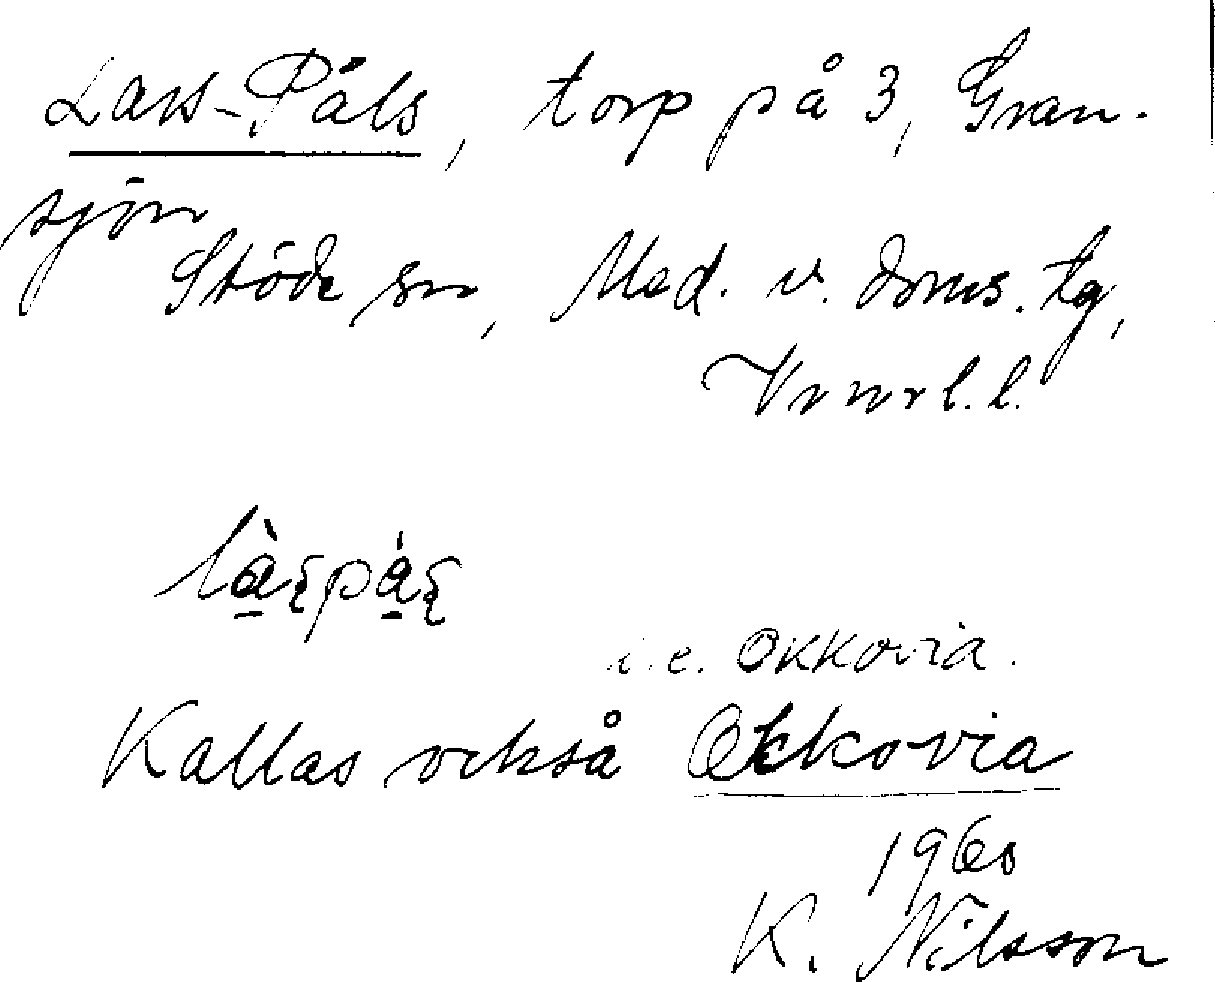 Lars-Påls, torp på 3, Gran-
sjön
Stöde sn, Med. v. doms. tg,
Vnorl. l.
i.e. Okkovia.
Kallas också Okkovia
1960
K. Nilsson